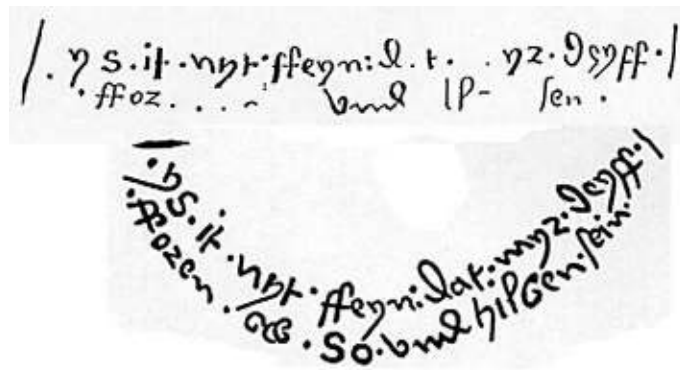 /. ys.it.nyt.ffeyn:d.t. . yz.deyff./
.ffoz . . . . vmd lp- sen .
.ys.it.nyt.ffeyn:dat:myz.deyff./
/.ffozen . So.vmd hilgen.sein.